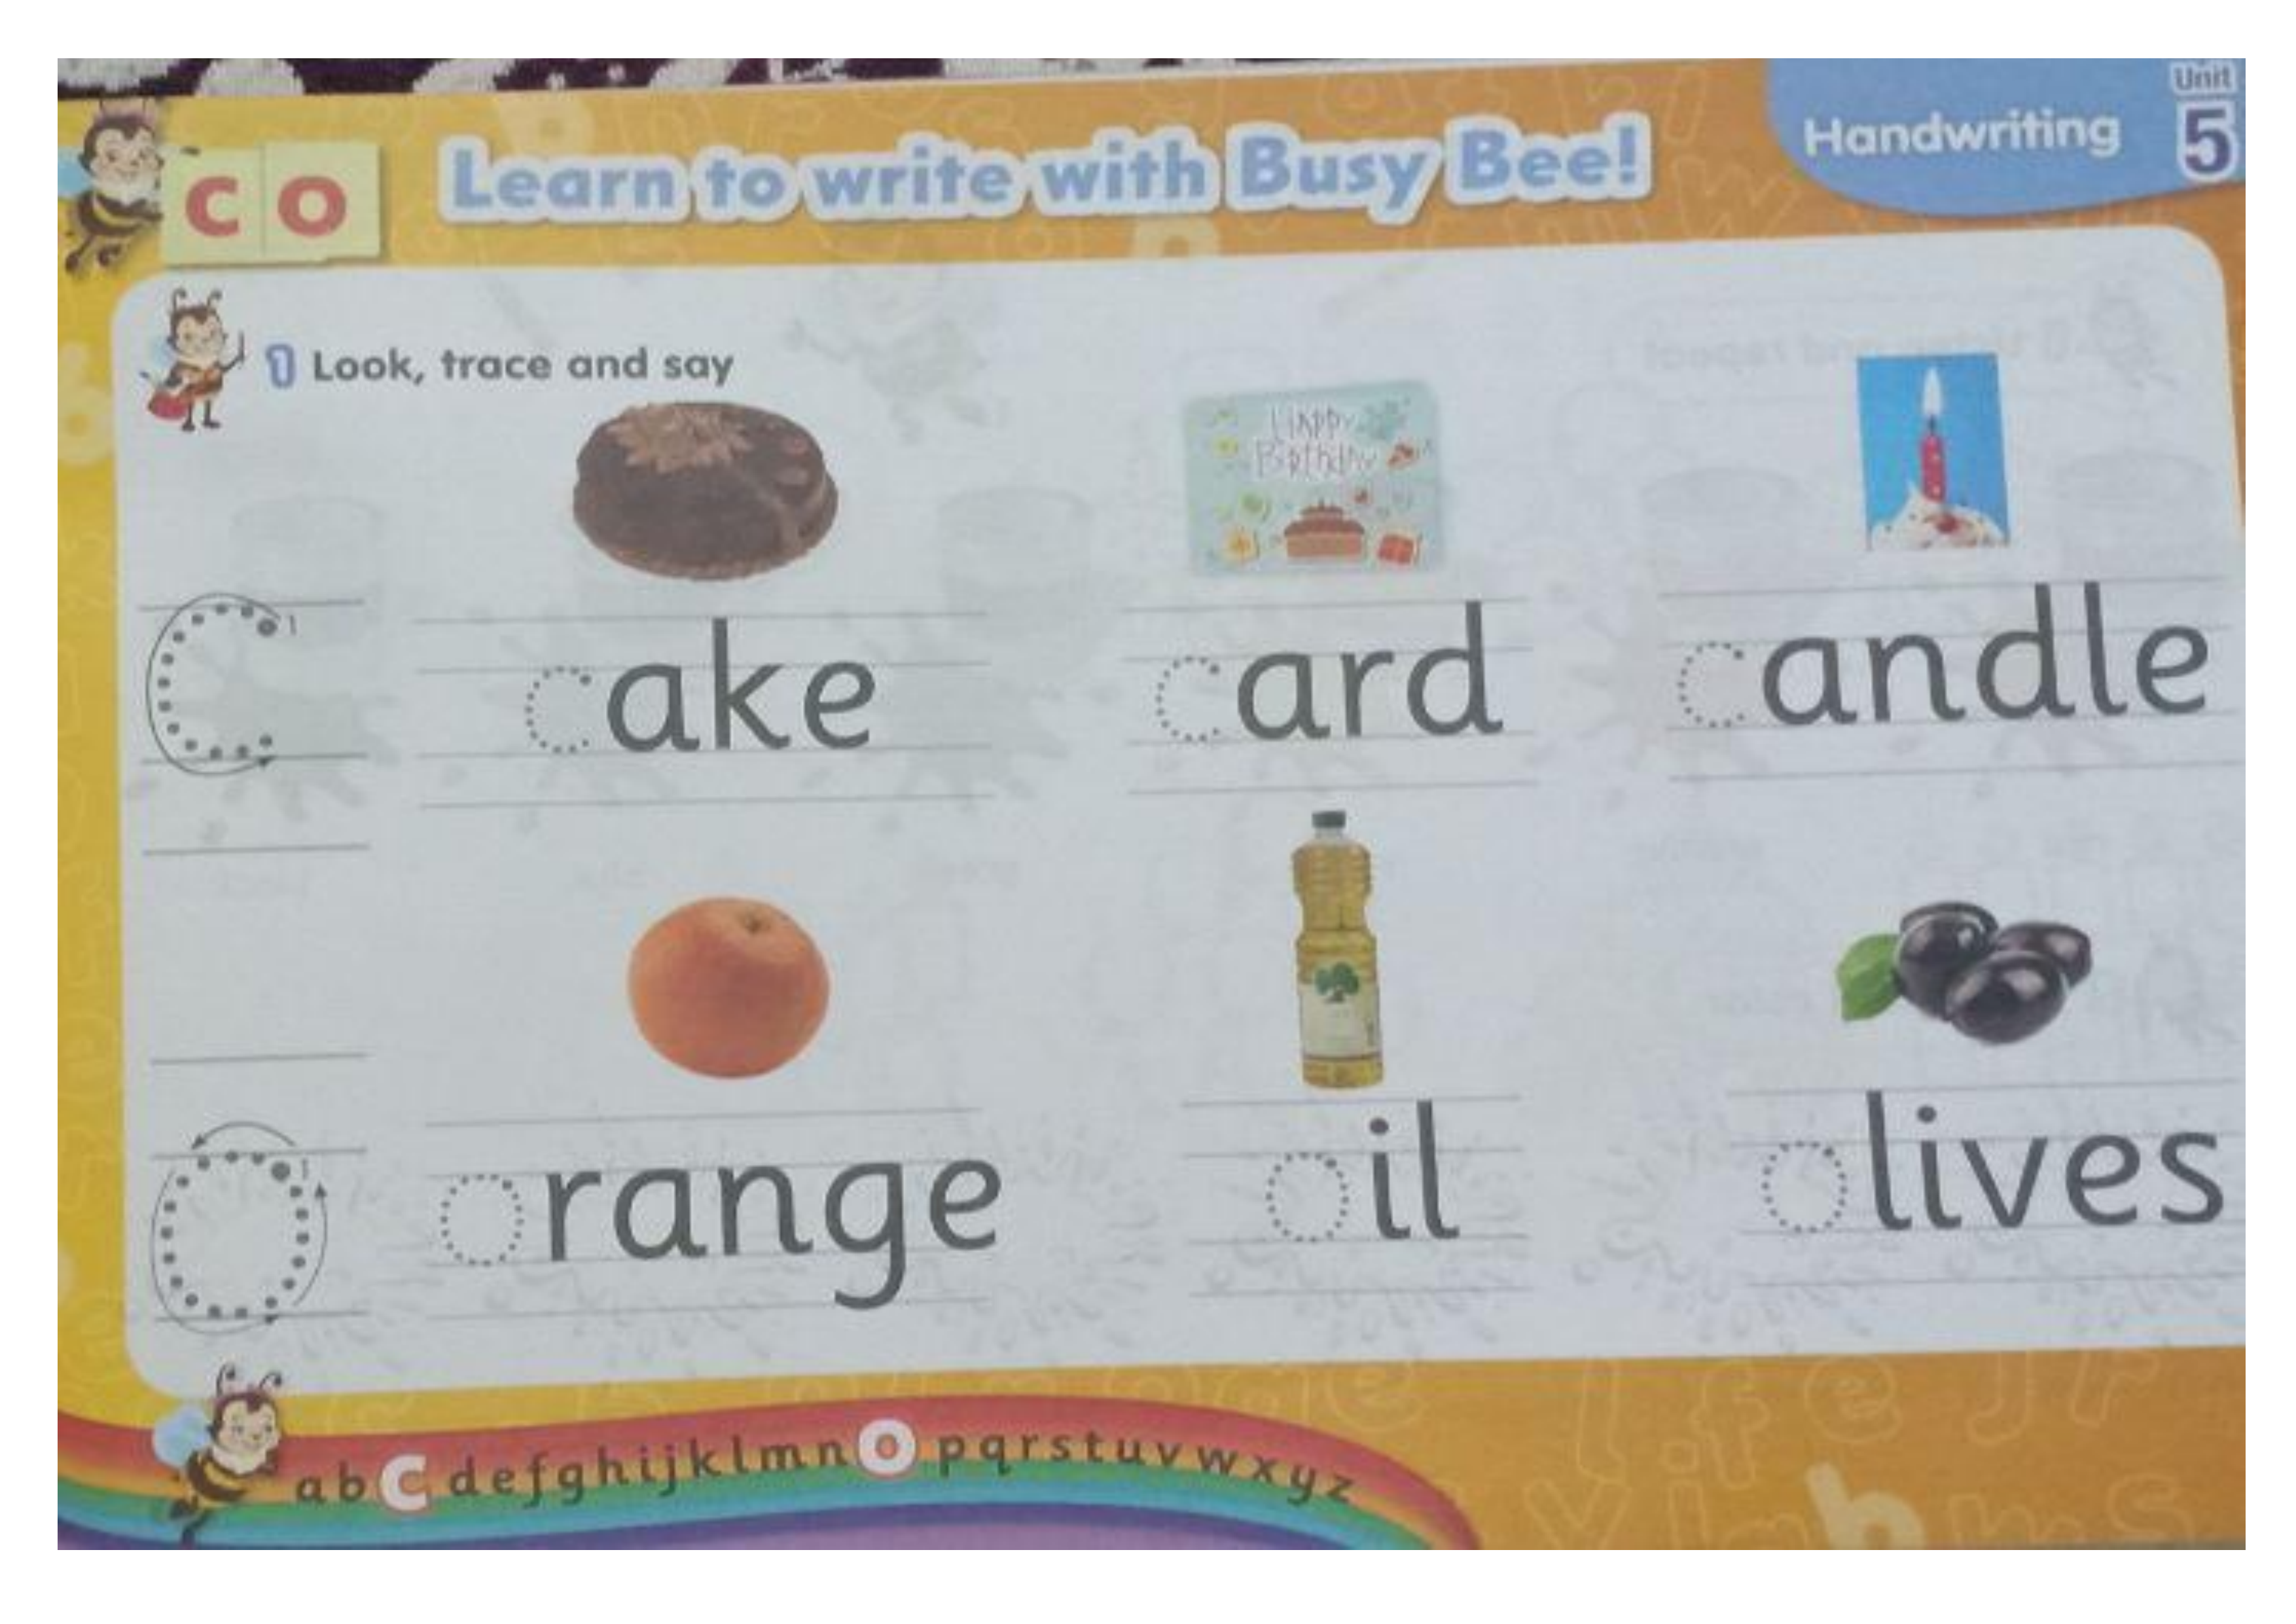 Unit
5
Handwriting
c o
Learn to write with Busy Bee!
1 Look, trace and say
Happy
Birthday
c 1
cake
card
candle
o 1
orange
oil
olives
a b c d e f g h i j k l m n o p q r s t u v w x y z